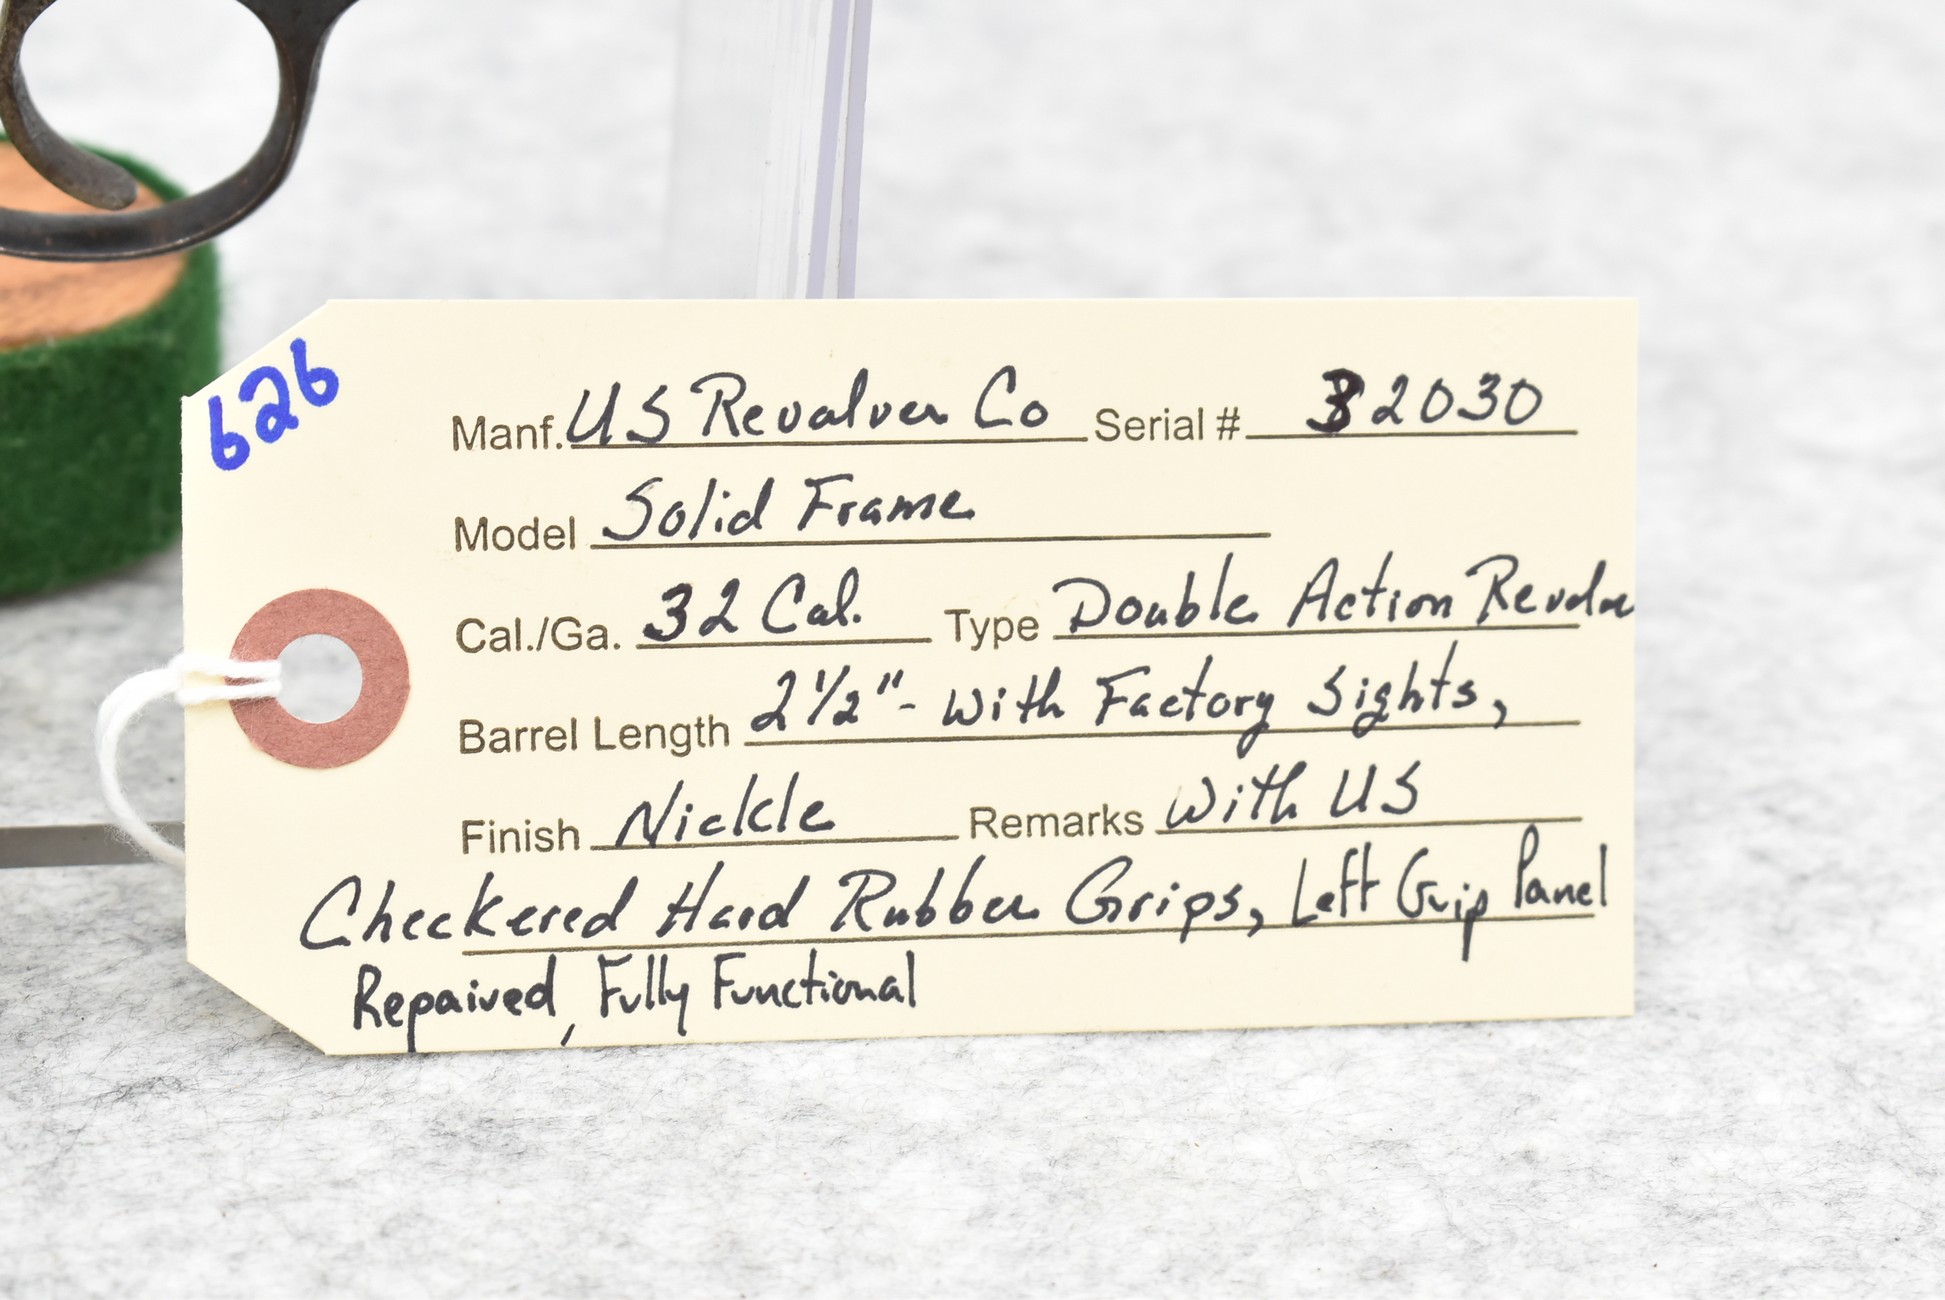 626
Manf. US Revalver Co Serial # 32030
Model Solid Frame
Cal./Ga. 32 Cal. Type Double Action
Barrel Length 2 1/2" - With Factory Sights,
Finish Nickle Remarks With US
Checkered Hard Rubber Grips, Left Grip Panel
Repaired, Fully Functional